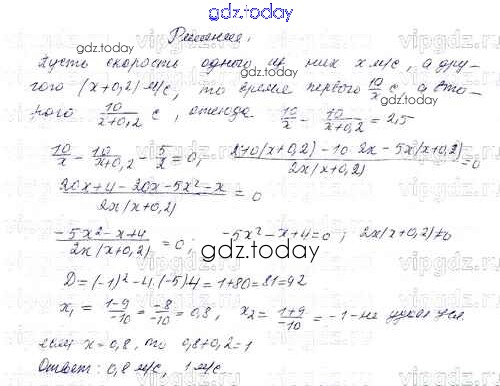 gdz.today
Решение:
Пусть скорость одного из них x м/с, а дру-
гого (x+0,2) м/с, то время первого 10/x с, а вто-
рого 10/x+0,2 с, отсюда 10/x - 10/x+0,2 = 2,5
10/x - 10/x+0,2 - 5/2 = 0; 2·10(x+0,2) - 10·2x - 5x(x+0,2)/2x(x+0,2) = 0
20x+4-20x-5x²-x/2x(x+0,2) = 0
-5x²-x+4/2x(x+0,2) = 0; -5x²-x+4=0; 2x(x+0,2)≠0
D=(-1)²-4·(-5)4=1+80=81=9²
x₁ = 1-9/-10 = -8/-10 = 0,8, x₂ = 1+9/-10 = -1 - не удов усл.
если x=0,8, то 0,8+0,2=1
Ответ: 0,8 м/с, 1 м/с